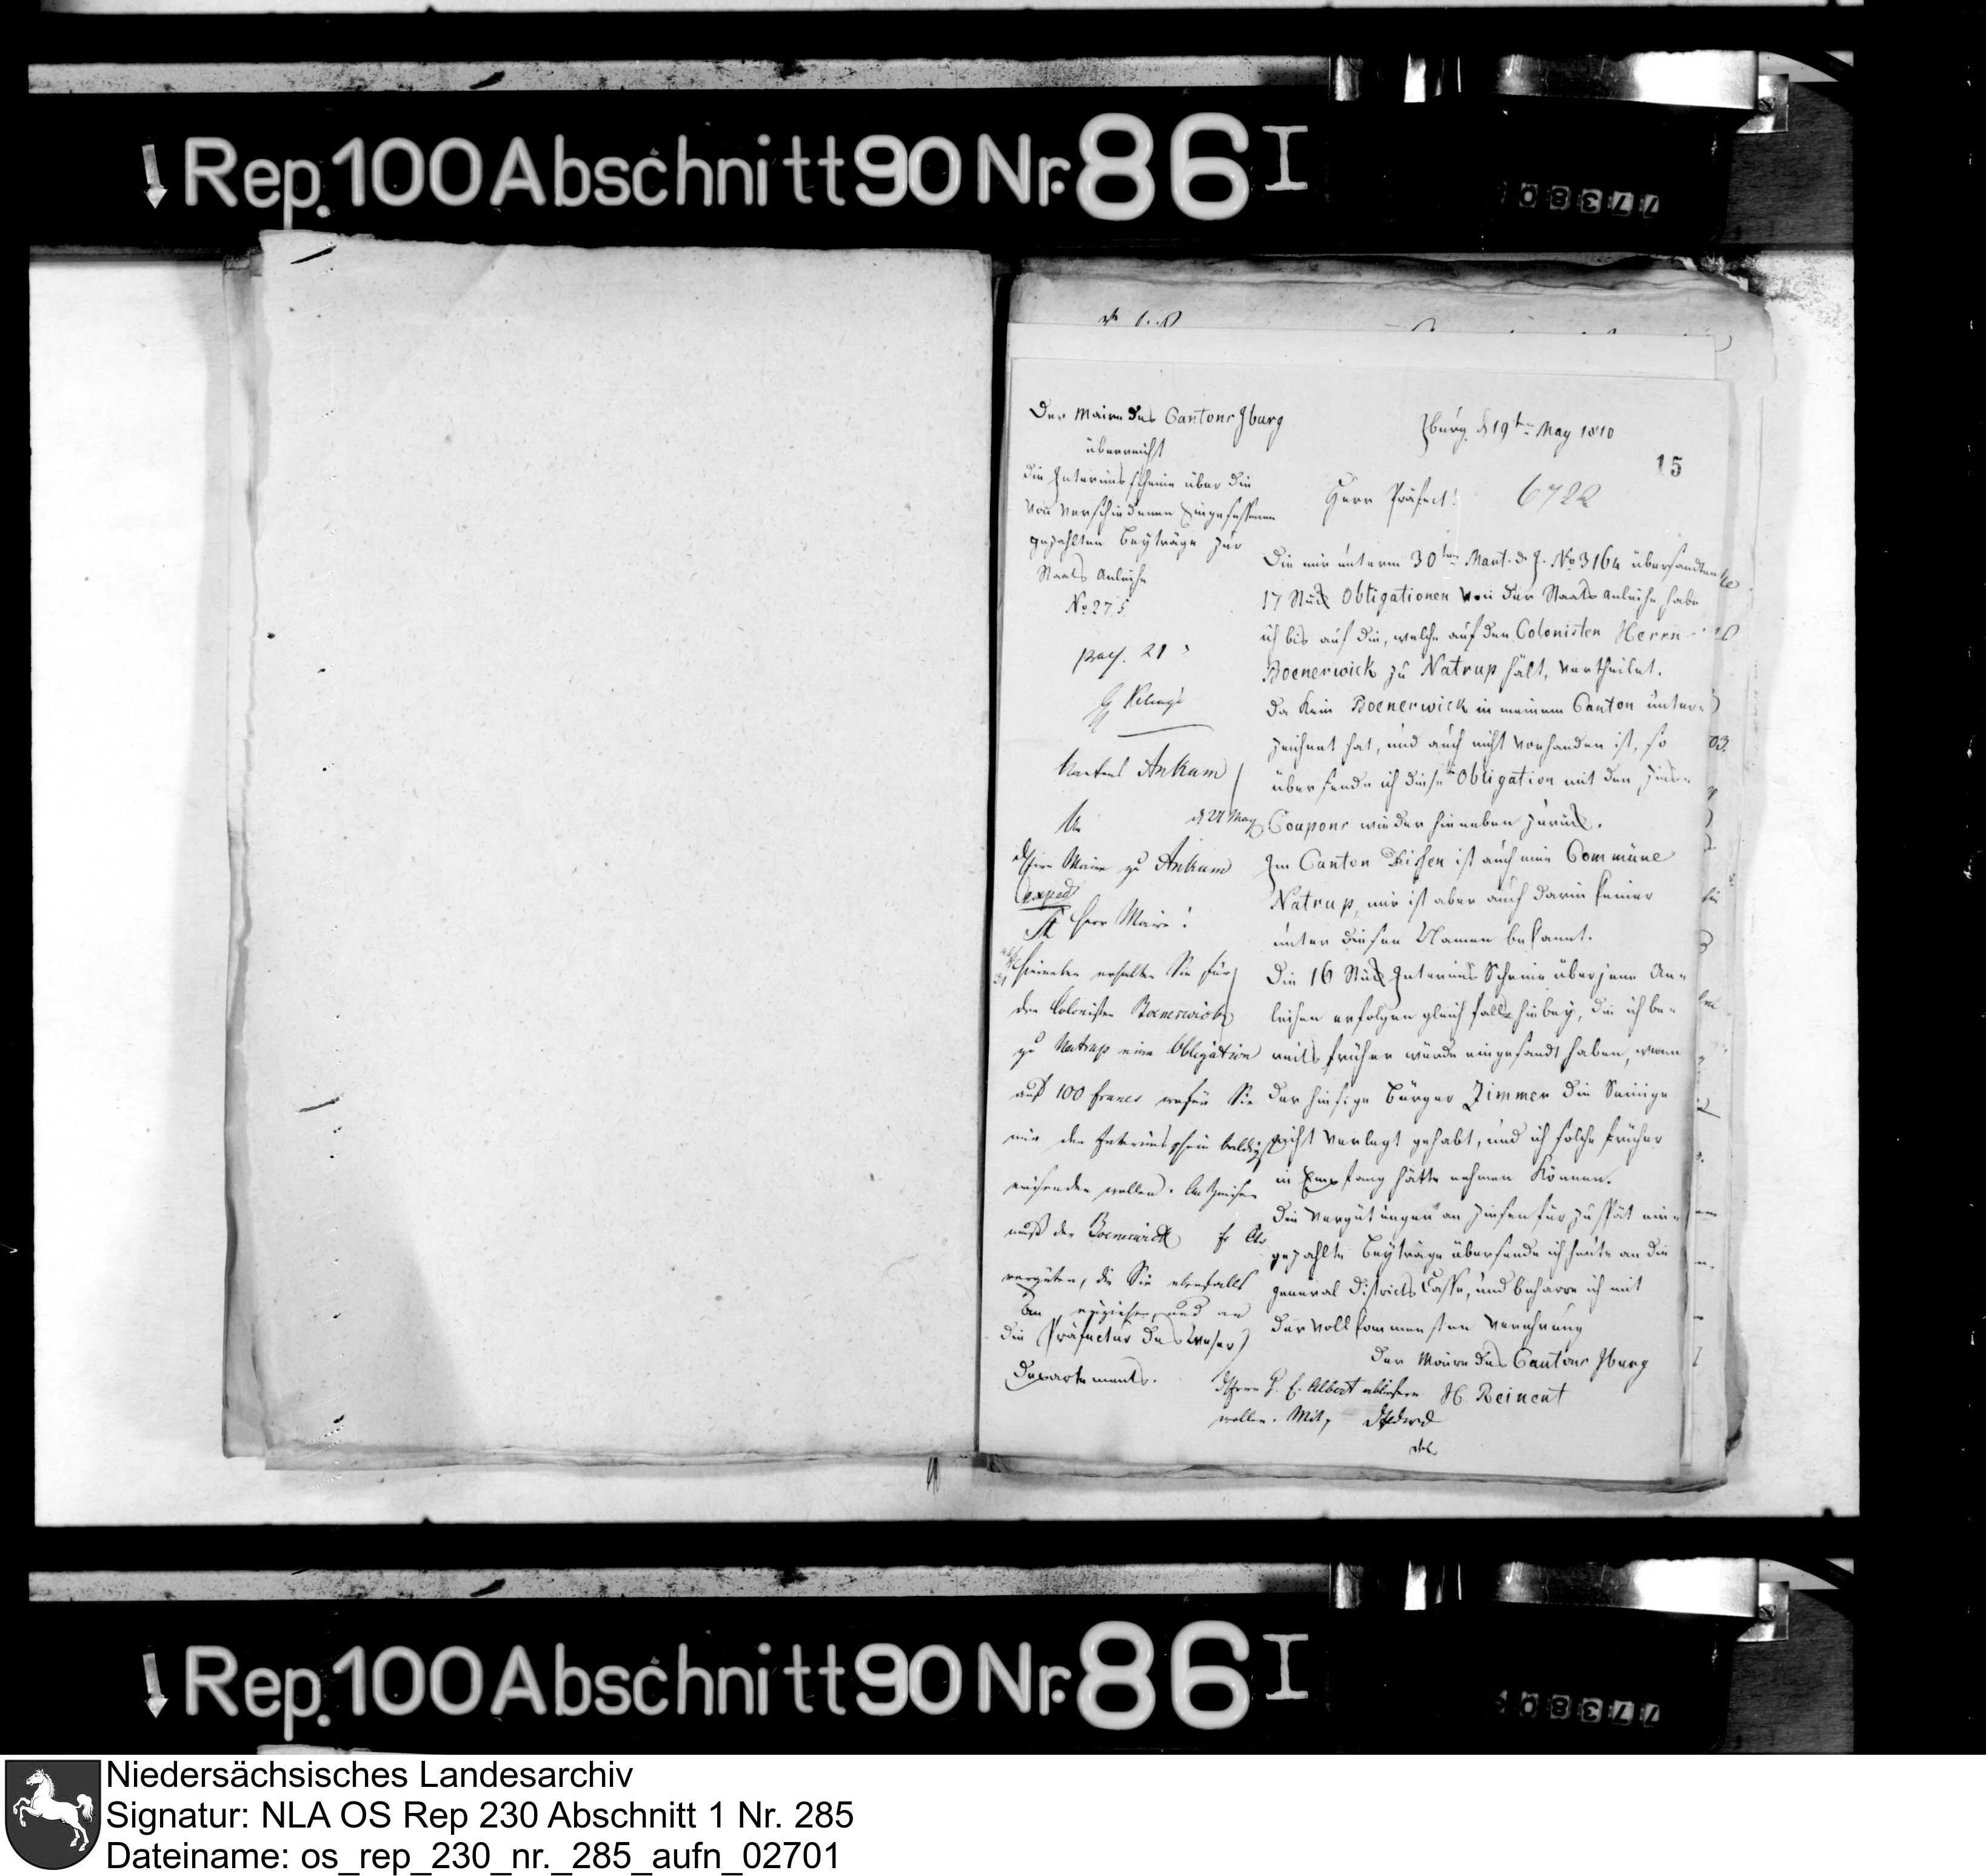 Rep. 100 Abschnitt 90 Nr. 86 I
77380
Der Maire des Cantons Iburg
überreicht
die Interimsscheine über die
von verschiedenen Eingesessenen
gezahlten Beyträge zur
Staats Anleihe
No 275.
Iburg d 19ten May 1810
15
Herr Präfect!
6722
Die mir unterm 30ten d. J. No 3164 übersandten
17 Stück Obligationen von der Staats Anleihe habe
ich bis auf die, welche auf den Colonisten Herrn
Boenerwick zu Natrup hält, vertheilet.
Da kein Boenerwick in meinem Canton unter-
zeichnet hat, und auch nicht vorhanden ist, so
übersende ich diese Obligation mit den Zins-
Coupons wieder hieneben zurück.
Im Canton Dissen ist auch eine Commüne
Natrup, mir ist aber auch darin keiner
unter diesen Namen bekannt.
Die 16 Stück Interims Scheine über jene An-
leihen erfolgen gleichfalls hiebey, die ich be-
reits früher würde eingesandt haben, wenn
der hiesige Bürger Zimmer die Seinige
nicht verlegt gehabt, und ich solche früher
in Empfang hätte nehmen können.
Die Vergütungen an Zinsen für zu spät ein-
gezahlte Beyträge übersende ich heute an die
General Districts Casse, und beharre ich mit
der vollkommensten Verehrung
Der Maire des Cantons Iburg
H Reinent
praes. 21
Ankum
An d 27 May
Herrn Maire zu Ankum
exped
Herr Maire!
Hieneben erhalten Sie für
den Colonisten Boenerwick
zu Natrup eine Obligation
auf 100 Francs wofür Sie
mir den Interimsschein baldigst
einsenden wollen. An Zinsen
muß der Boenerwick
vergüten, die Sie ebenfalls
einziehen und an
Herrn Albert abliefern
wollen. Mit
An
die Präfectur des Weser
Departements.
Rep. 100 Abschnitt 90 Nr. 86 I
77380
Niedersächsisches Landesarchiv
Signatur: NLA OS Rep 230 Abschnitt 1 Nr. 285
Dateiname: os_rep_230_nr._285_aufn_02701